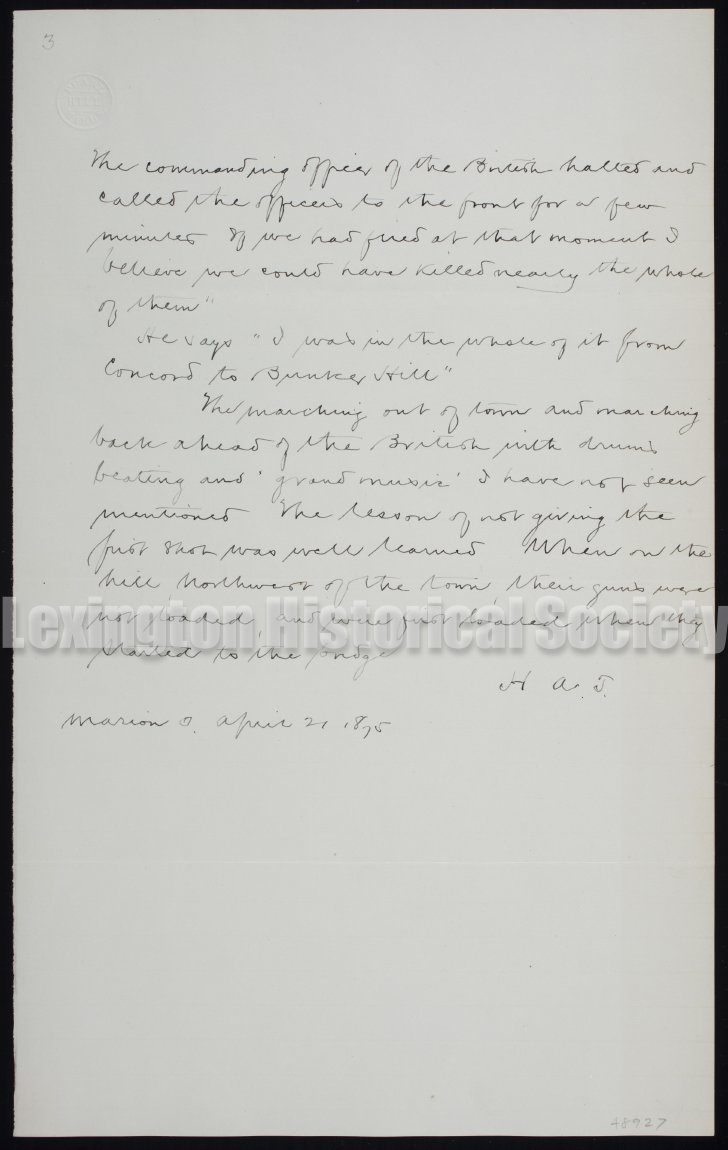 3
The commanding officer of the British halted and
called the officers to the front for a few
minutes If we had fired at that moment I
believe we could have killed nearly the whole
of them"
He says "I was in the whole of it from
Concord to Bunker Hill"
The marching out of town and marching
back ahead of the British with drums
beating and 'grand music' I have not seen
mentioned The lesson of not giving the
first shot was well learned When on the
hill Northwest of the town, their guns were
not loaded, and were first loaded when they
started to the bridge
H A. T.
Marion O. April 21 1875
Lexington Historical Society
48927